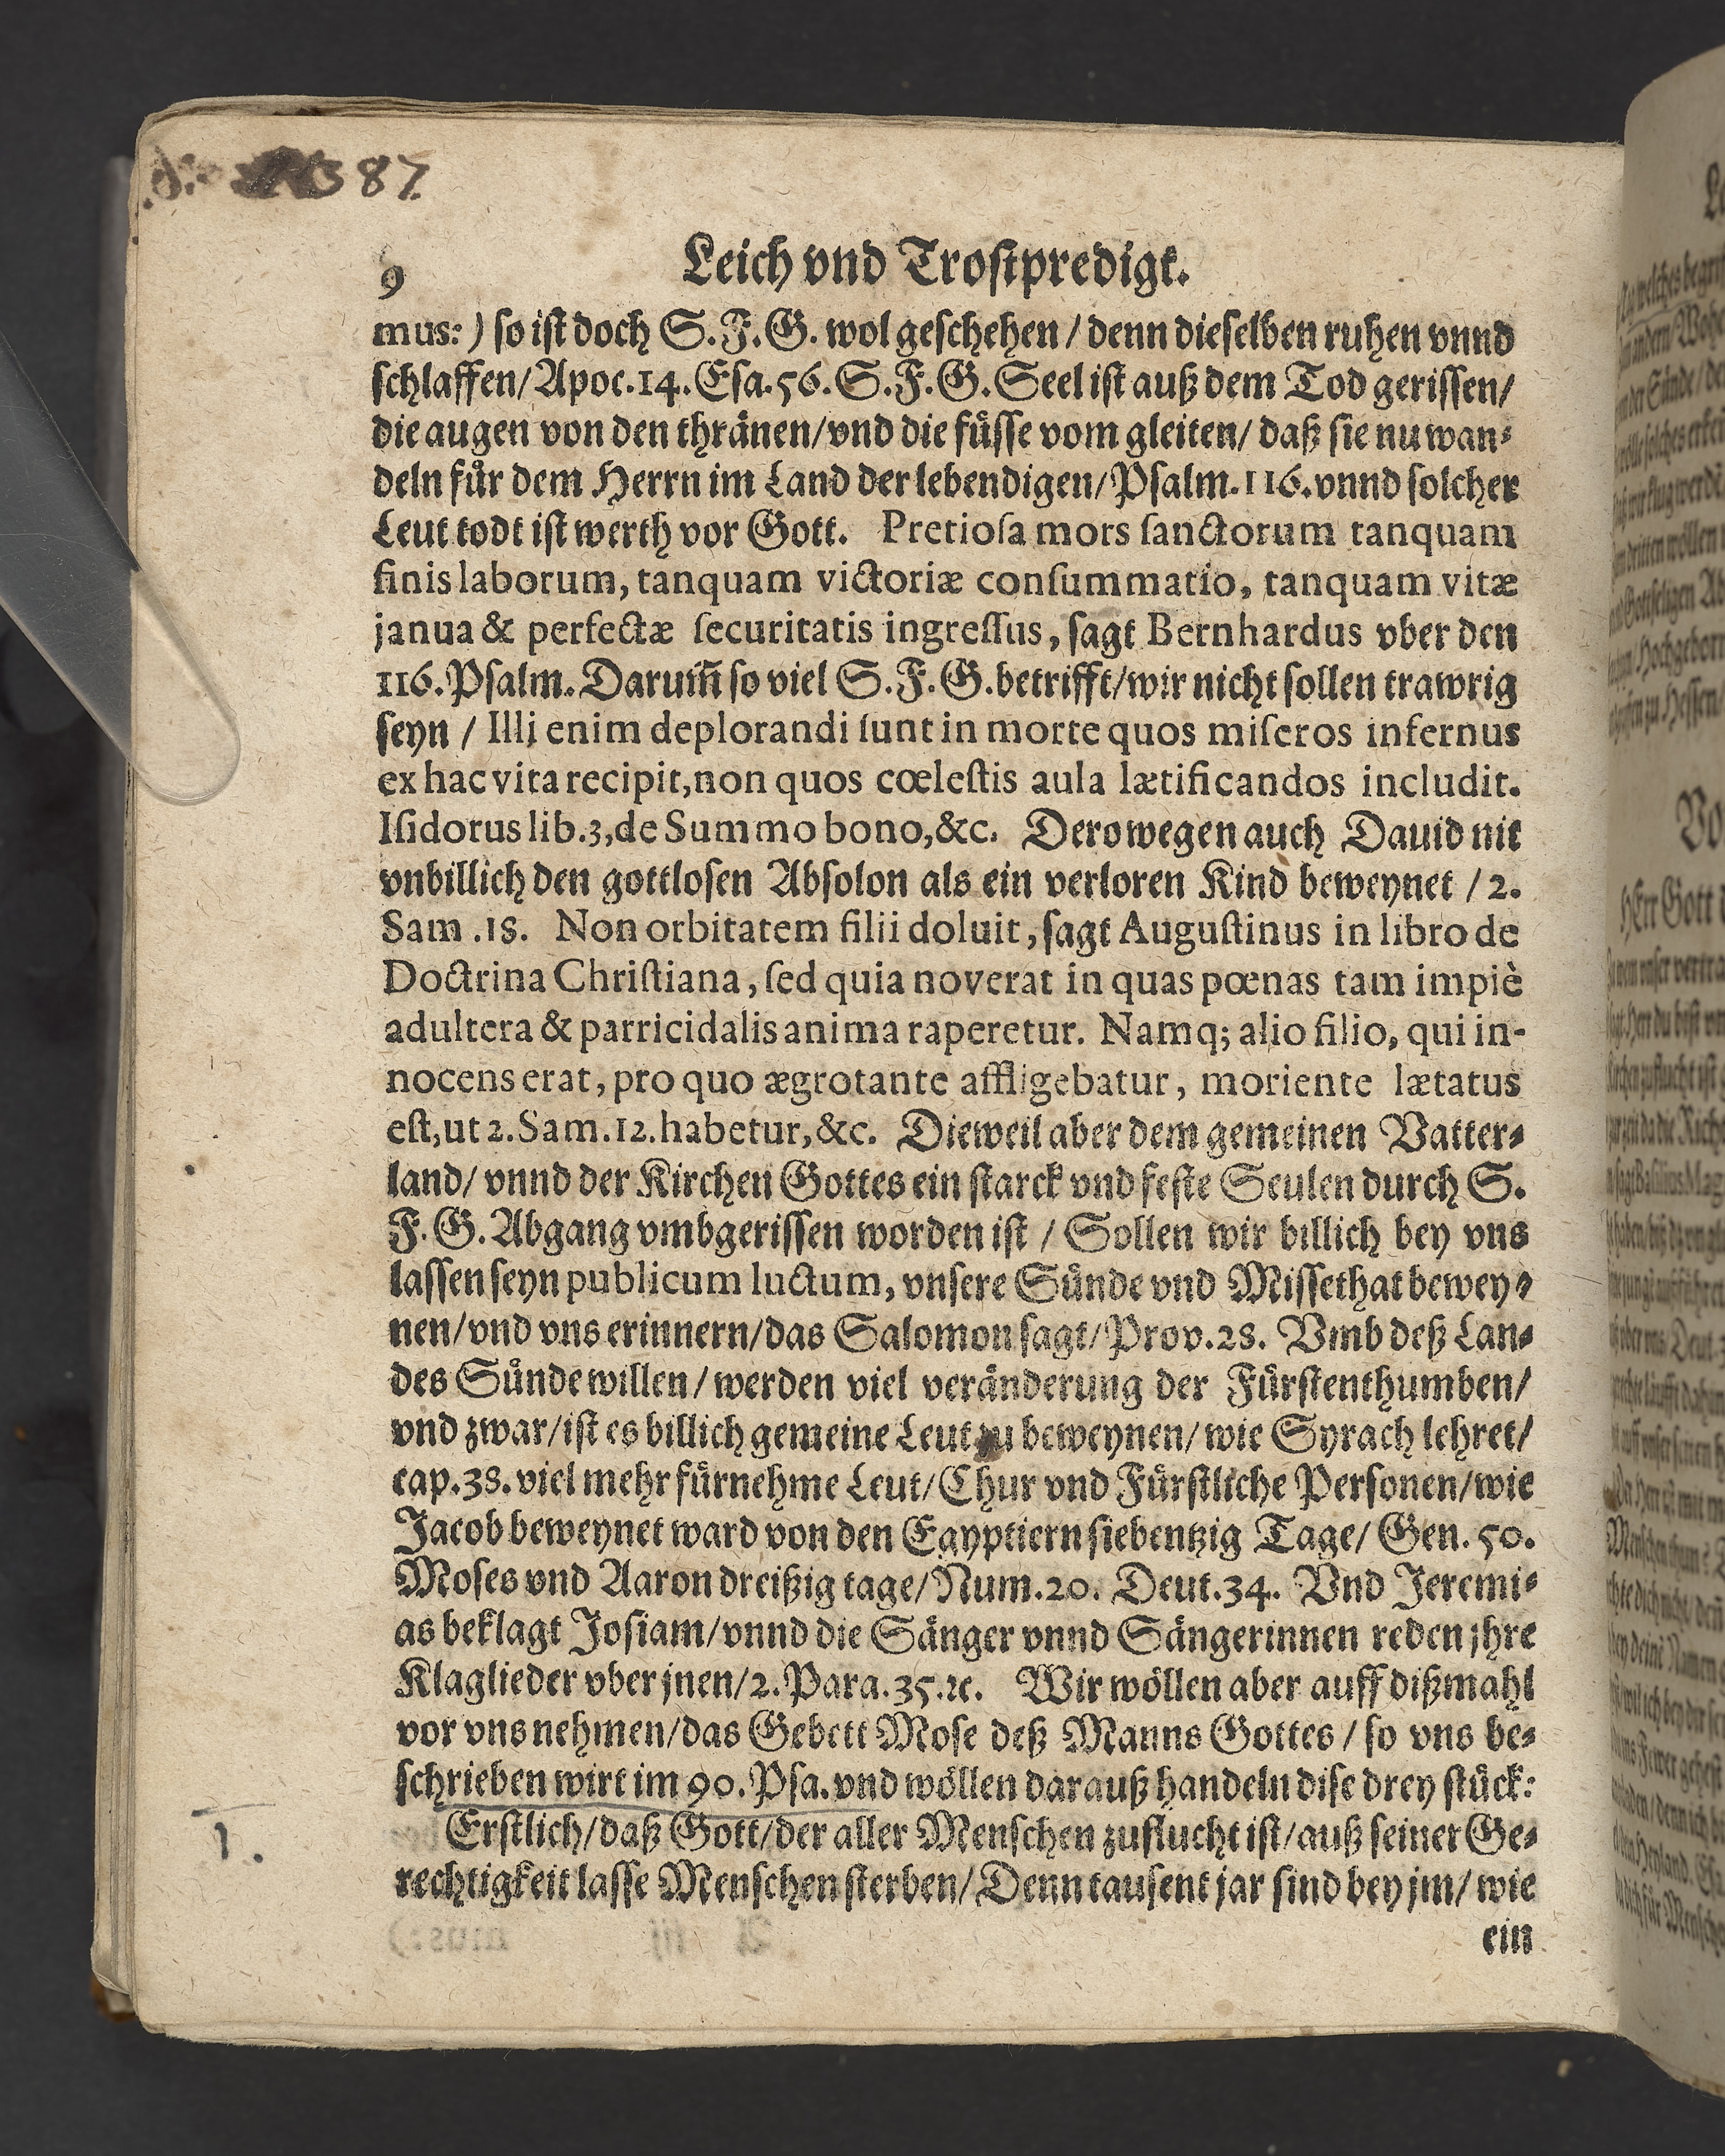 87.
9 Leich vnd Trostpredigt.
mus:) so ist doch S. F. G. wol geschehen / denn dieselben ruhen vnnd
schlaffen / Apoc. 14. Esa. 56. S. F. G. Seel ist auß dem Tod gerissen /
die augen von den thränen / vnd die füsse vom gleiten / daß sie nu wan-
deln für dem Herrn im Land der lebendigen / Psalm. 116. vnnd solcher
Leut todt ist werth vor Gott. Pretiosa mors sanctorum tanquam
finis laborum, tanquam victoriæ consummatio, tanquam vitæ
janua & perfectæ securitatis ingressus, sagt Bernhardus vber den
116. Psalm. Darum̃ so viel S. F. G. betrifft / wir nicht sollen trawrig
seyn / Illi enim deplorandi sunt in morte quos miseros infernus
ex hac vita recipit, non quos cœlestis aula lætificandos includit.
Isidorus lib. 3, de Summo bono, &c. Derowegen auch Dauid nit
vnbillich den gottlosen Absolon als ein verloren Kind beweynet / 2.
Sam. 18. Non orbitatem filii doluit, sagt Augustinus in libro de
Doctrina Christiana, sed quia noverat in quas pœnas tam impiè
adultera & parricidalis anima raperetur. Namq; alio filio, qui in-
nocens erat, pro quo ægrotante affligebatur, moriente lætatus
est, ut 2. Sam. 12. habetur, &c. Dieweil aber dem gemeinen Vatter-
land / vnnd der Kirchen Gottes ein starck vnd feste Seulen durch S.
F. G. Abgang vmbgerissen worden ist / Sollen wir billich bey vns
lassen seyn publicum luctum, vnsere Sünde vnd Missethat bewey-
nen / vnd vns erinnern / das Salomon sagt / Prov. 28. Vmb deß Lan-
des Sünde willen / werden viel veränderung der Fürstenthumben /
vnd zwar / ist es billich gemeine Leut zu beweynen / wie Syrach lehret /
cap. 38. viel mehr fürnehme Leut / Chur vnd Fürstliche Personen / wie
Jacob beweynet ward von den Egyptiern siebentzig Tage / Gen. 50.
Moses vnd Aaron dreißig tage / Num. 20. Deut. 34. Vnd Jeremi-
as beklagt Josiam / vnnd die Sänger vnnd Sängerinnen reden jhre
Klaglieder vber jnen / 2. Para. 35. ꝛc. Wir wöllen aber auff dißmahl
vor vns nehmen / das Gebett Mose deß Manns Gottes / so vns be-
schrieben wirt im 90. Psa. vnd wöllen darauß handeln dise drey stück:
1. Erstlich / daß Gott / der aller Menschen zuflucht ist / auß seiner Ge-
rechtigkeit lasse Menschen sterben / Denn tausent jar sind bey jm / wie
ein